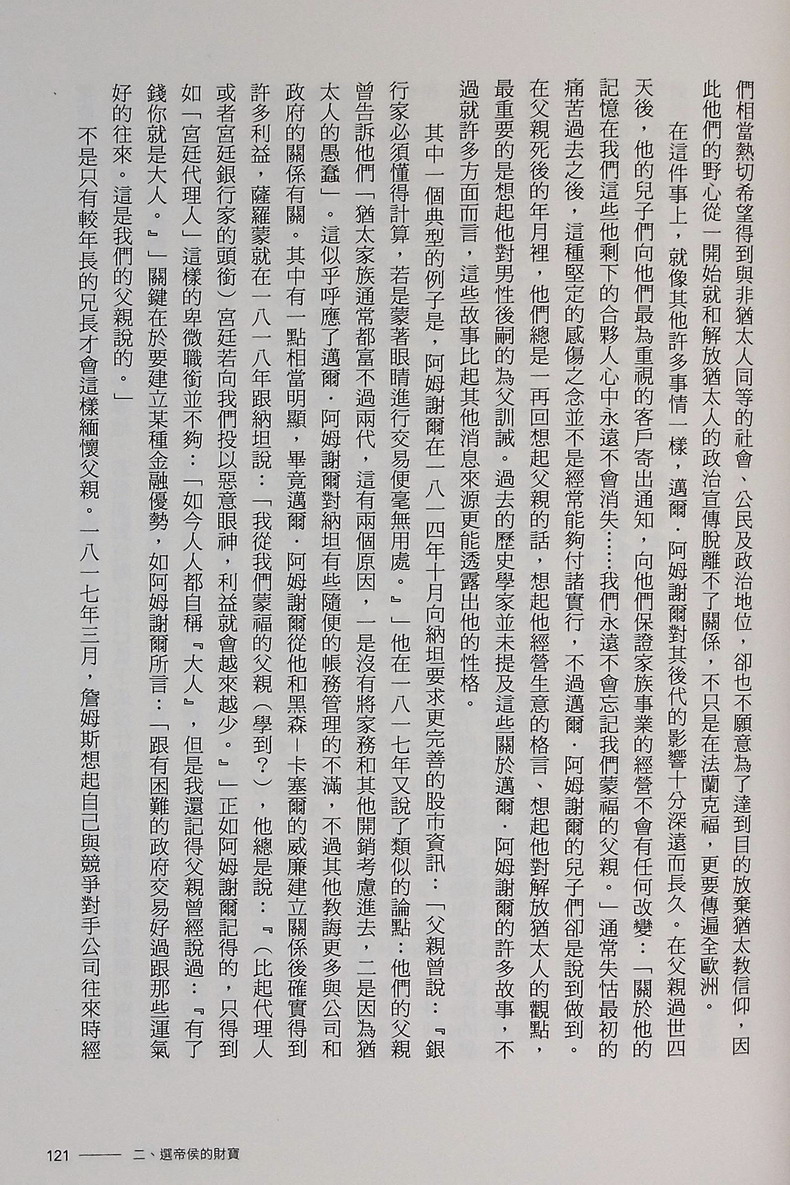 們相當熱切希望得到與非猶太人同等的社會、公民及政治地位，卻也不願意為了達到目的放棄猶太教信仰，因
此他們的野心從一開始就和解放猶太人的政治宣傳脫離不了關係，不只是在法蘭克福，更要傳遍全歐洲。
在這件事上，就像其他許多事情一樣，邁爾．阿姆謝爾對其後代的影響十分深遠而長久。在父親過世四
天後，他的兒子們向他們最為重視的客戶寄出通知，向他們保證家族事業的經營不會有任何改變：「關於他的
記憶在我們這些他剩下的合夥人心中永遠不會消失……我們永遠不會忘記我們蒙福的父親。」通常失怙最初的
痛苦過去之後，這種堅定的感傷之念並不是經常能夠付諸實行，不過邁爾．阿姆謝爾的兒子們卻是說到做到。
在父親死後的年月裡，他們總是一再回想起父親的話，想起他經營生意的格言、想起他對解放猶太人的觀點，
最重要的是想起他對男性後嗣的為父訓誡。過去的歷史學家並未提及這些關於邁爾．阿姆謝爾的許多故事，不
過就許多方面而言，這些故事比起其他消息來源更能透露出他的性格。
其中一個典型的例子是，阿姆謝爾在一八一四年十月向納坦要求更完善的股市資訊：「父親曾說：『銀
行家必須懂得計算，若是蒙著眼睛進行交易便毫無用處。』」他在一八一七年又說了類似的論點：他們的父親
曾告訴他們「猶太家族通常都富不過兩代，這有兩個原因，一是沒有將家務和其他開銷考慮進去，二是因為猶
太人的愚蠢」。這似乎呼應了邁爾．阿姆謝爾對納坦有些隨便的帳務管理的不滿，不過其他教誨更多與公司和
政府的關係有關。其中有一點相當明顯，畢竟邁爾．阿姆謝爾從他和黑森－卡塞爾的威廉建立關係後確實得到
許多利益，薩羅蒙就在一八一八年跟納坦說：「我從我們蒙福的父親（學到？），他總是說：『（比起代理人
或者宮廷銀行家的頭銜）宮廷若向我們投以惡意眼神，利益就會越來越少。』」正如阿姆謝爾記得的，只得到
如「宮廷代理人」這樣的卑微職銜並不夠：「如今人人都自稱『大人』，但是我還記得父親曾經說過：『有了
錢你就是大人。』」關鍵在於要建立某種金融優勢，如阿姆謝爾所言：「跟有困難的政府交易好過跟那些運氣
好的往來。這是我們的父親說的。」
不是只有較年長的兄長才會這樣緬懷父親。一八一七年三月，詹姆斯想起自己與競爭對手公司往來時經
121 —— 二、選帝侯的財寶